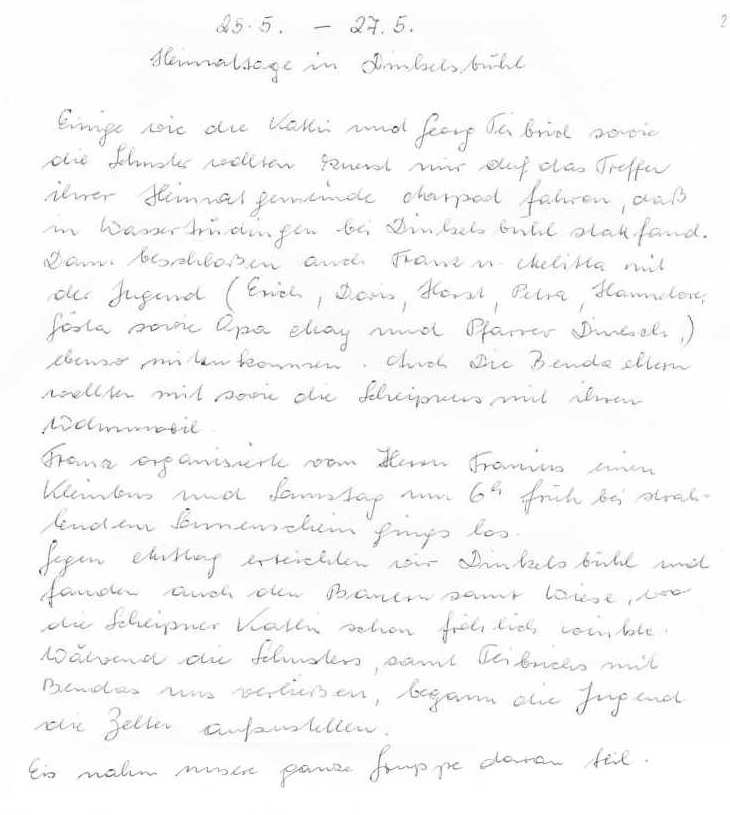 25.5. – 27.5.
2
Heimattage in Dinkelsbühl
Einige wie die Kathi und Georg Teibrich sowie
die Schuster wollten zuerst nur auf das Treffen
ihrer Heimatgemeinde Marpod fahren, daß
in Wassertrüdingen bei Dinkelsbühl stattfand.
Dann beschloßen auch Franz u. Melitta mit
der Jugend (Erich, Doris, Horst, Petra, Hannelore,
Gösta sowie Opa May und Pfarrer Dinesch,)
ebenso mitzukommen. Auch Die Benda eltern
wollten mit sowie die Scheipners mit ihrem
Wohnmobil.
Franz organisierte vom Herrn Franius einen
Kleinbus und Samstag um 6h früh bei strah-
lendem Sonnenschein gings los.
Gegen Mittag erreichten wir Dinkelsbühl und
fanden auch den Bauern samt Wiese, wo
die Scheipner Kathi schon fröhlich winkte.
Während die Schusters, samt Teibrichs mit
Bendas uns verließen, begann die Jugend
die Zelte aufzustellen.
Es nahm unsere ganze Gruppe daran teil.